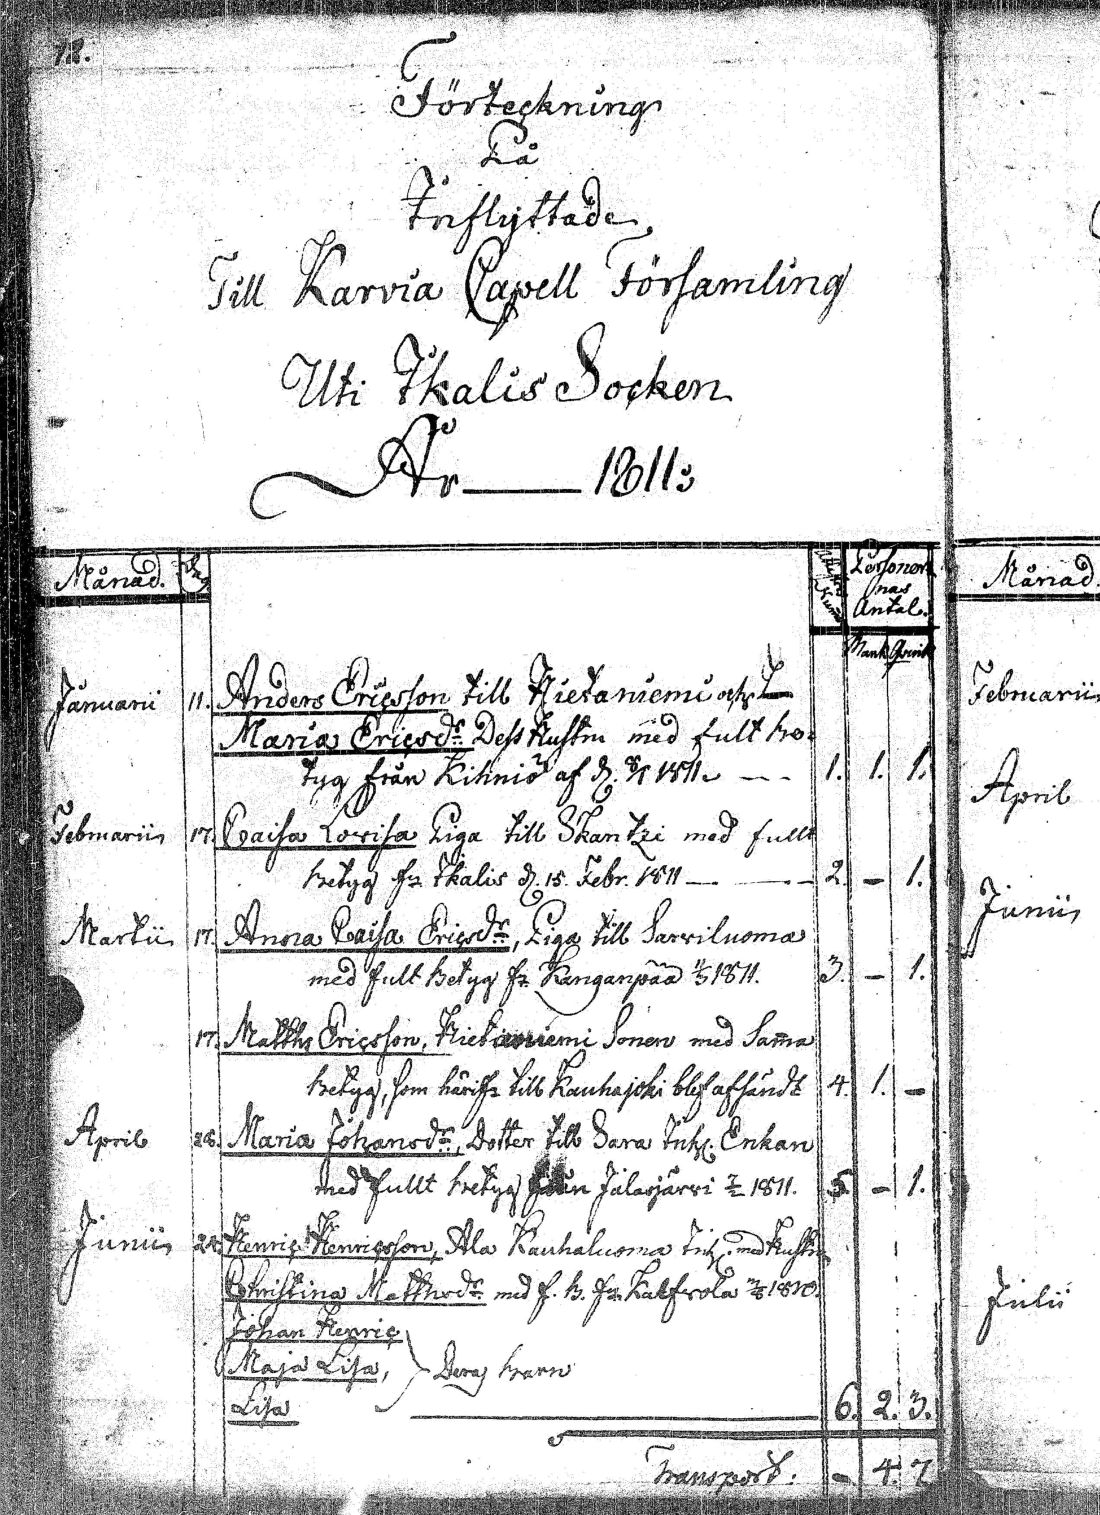 78.
Förteckning
På
Inflyttade
Till Karvia Capell Församling
Uti Ikalis Socken
År 1811:
Månad.
Dag
Personer
nas
Antal.
Mank. Qvink.
Månad.
Januarii 11. Anders Ericsson till Hietaniemi och
Maria Ericsdr: Dess Hustru med fult be-
tyg från Kihniö af d. 1811. 1. 1. 1.
Februarii 17. Caisa Lovisa Piga till Skantzi med fullt
betyg fr. Ikalis d. 15. Febr. 1811 2. – 1.
Martii 17. Anna Caisa Ericsdr:, Piga till Sarviluoma
med fult betyg fr. Kanganpää 1811. 3. – 1.
17. Matths Ericsson, Hietaniemi Sonen med Samma
betyg, som härifr. till Kauhajoki blef afsändt 4. 1. –
April 28. Maria Johansdr:, Dotter till Sara Inh. Enkan
med fullt betyg från Jalasjärvi 1811. 5. – 1.
Junii 24. Henric Henricsson, Ala Kauhaluoma Inh. med Hustru
Christina Matthsdr: med f. b. fr. 1810.
Johan Henric
Maja Lisa, Deras barn
Lisa 6. 2. 3.
Transport: – 4. 7
Februarii
April
Junii
Julii